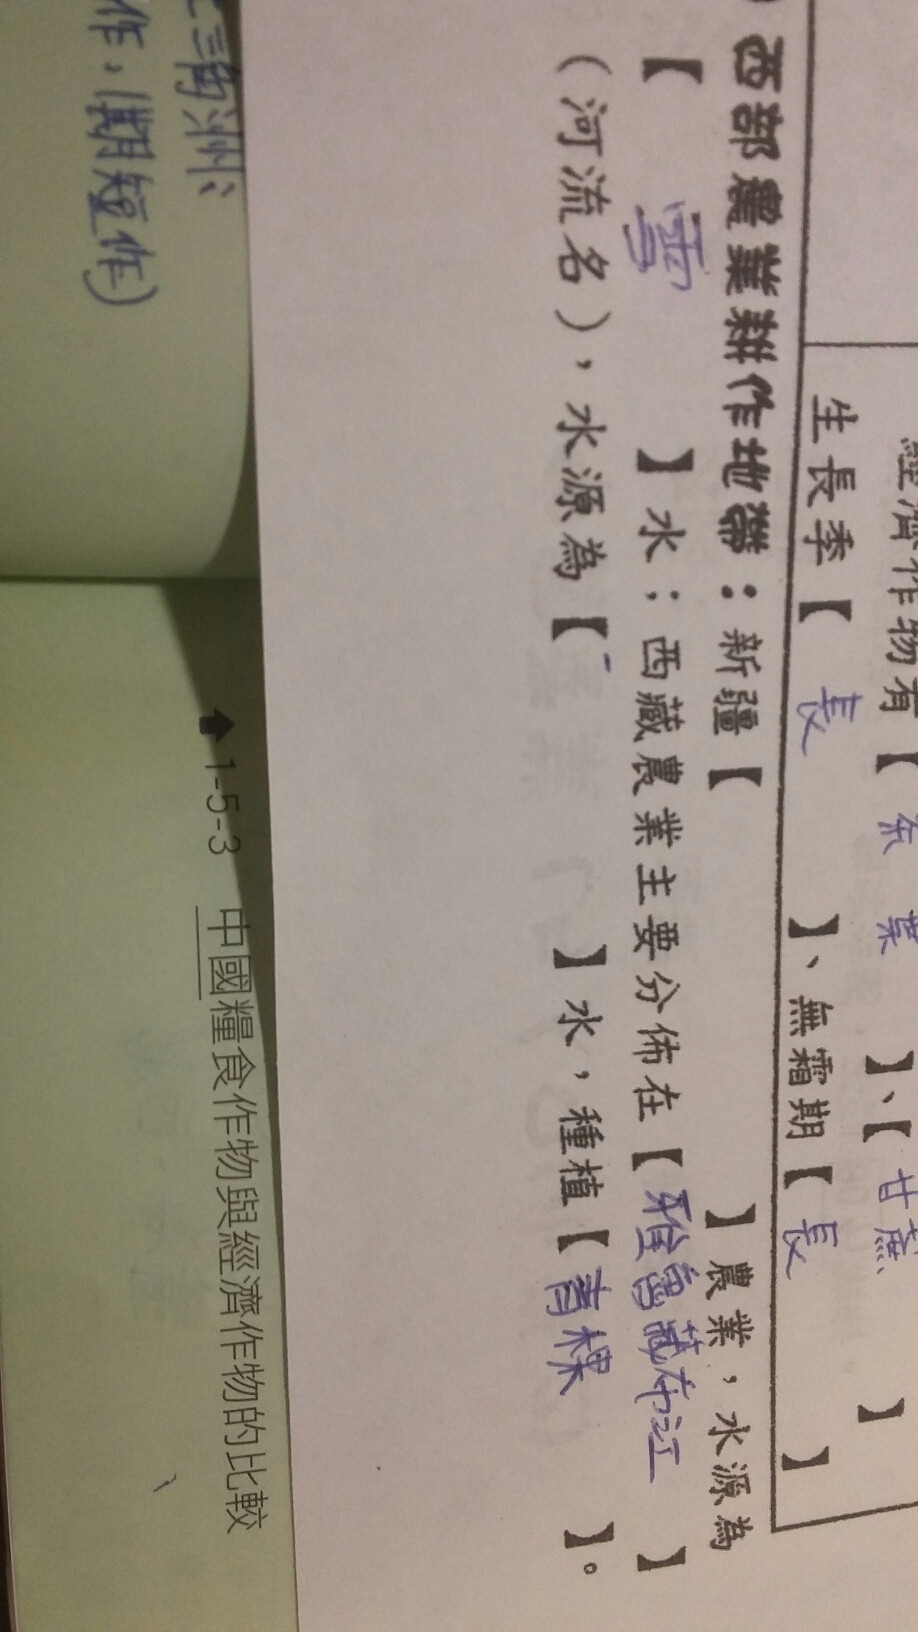 經濟作物有【 茶 葉 】、【 甘蔗、 】
生長季【 長 】、無霜期【 長 】
西部農業耕作地帶：新疆【 】農業，水源為
【 雪 】水；西藏農業主要分佈在【雅魯藏布江 】
（河流名），水源為【 】水，種植【青稞 】。
三角洲：
作：1期短作)
1-5-3 中國糧食作物與經濟作物的比較